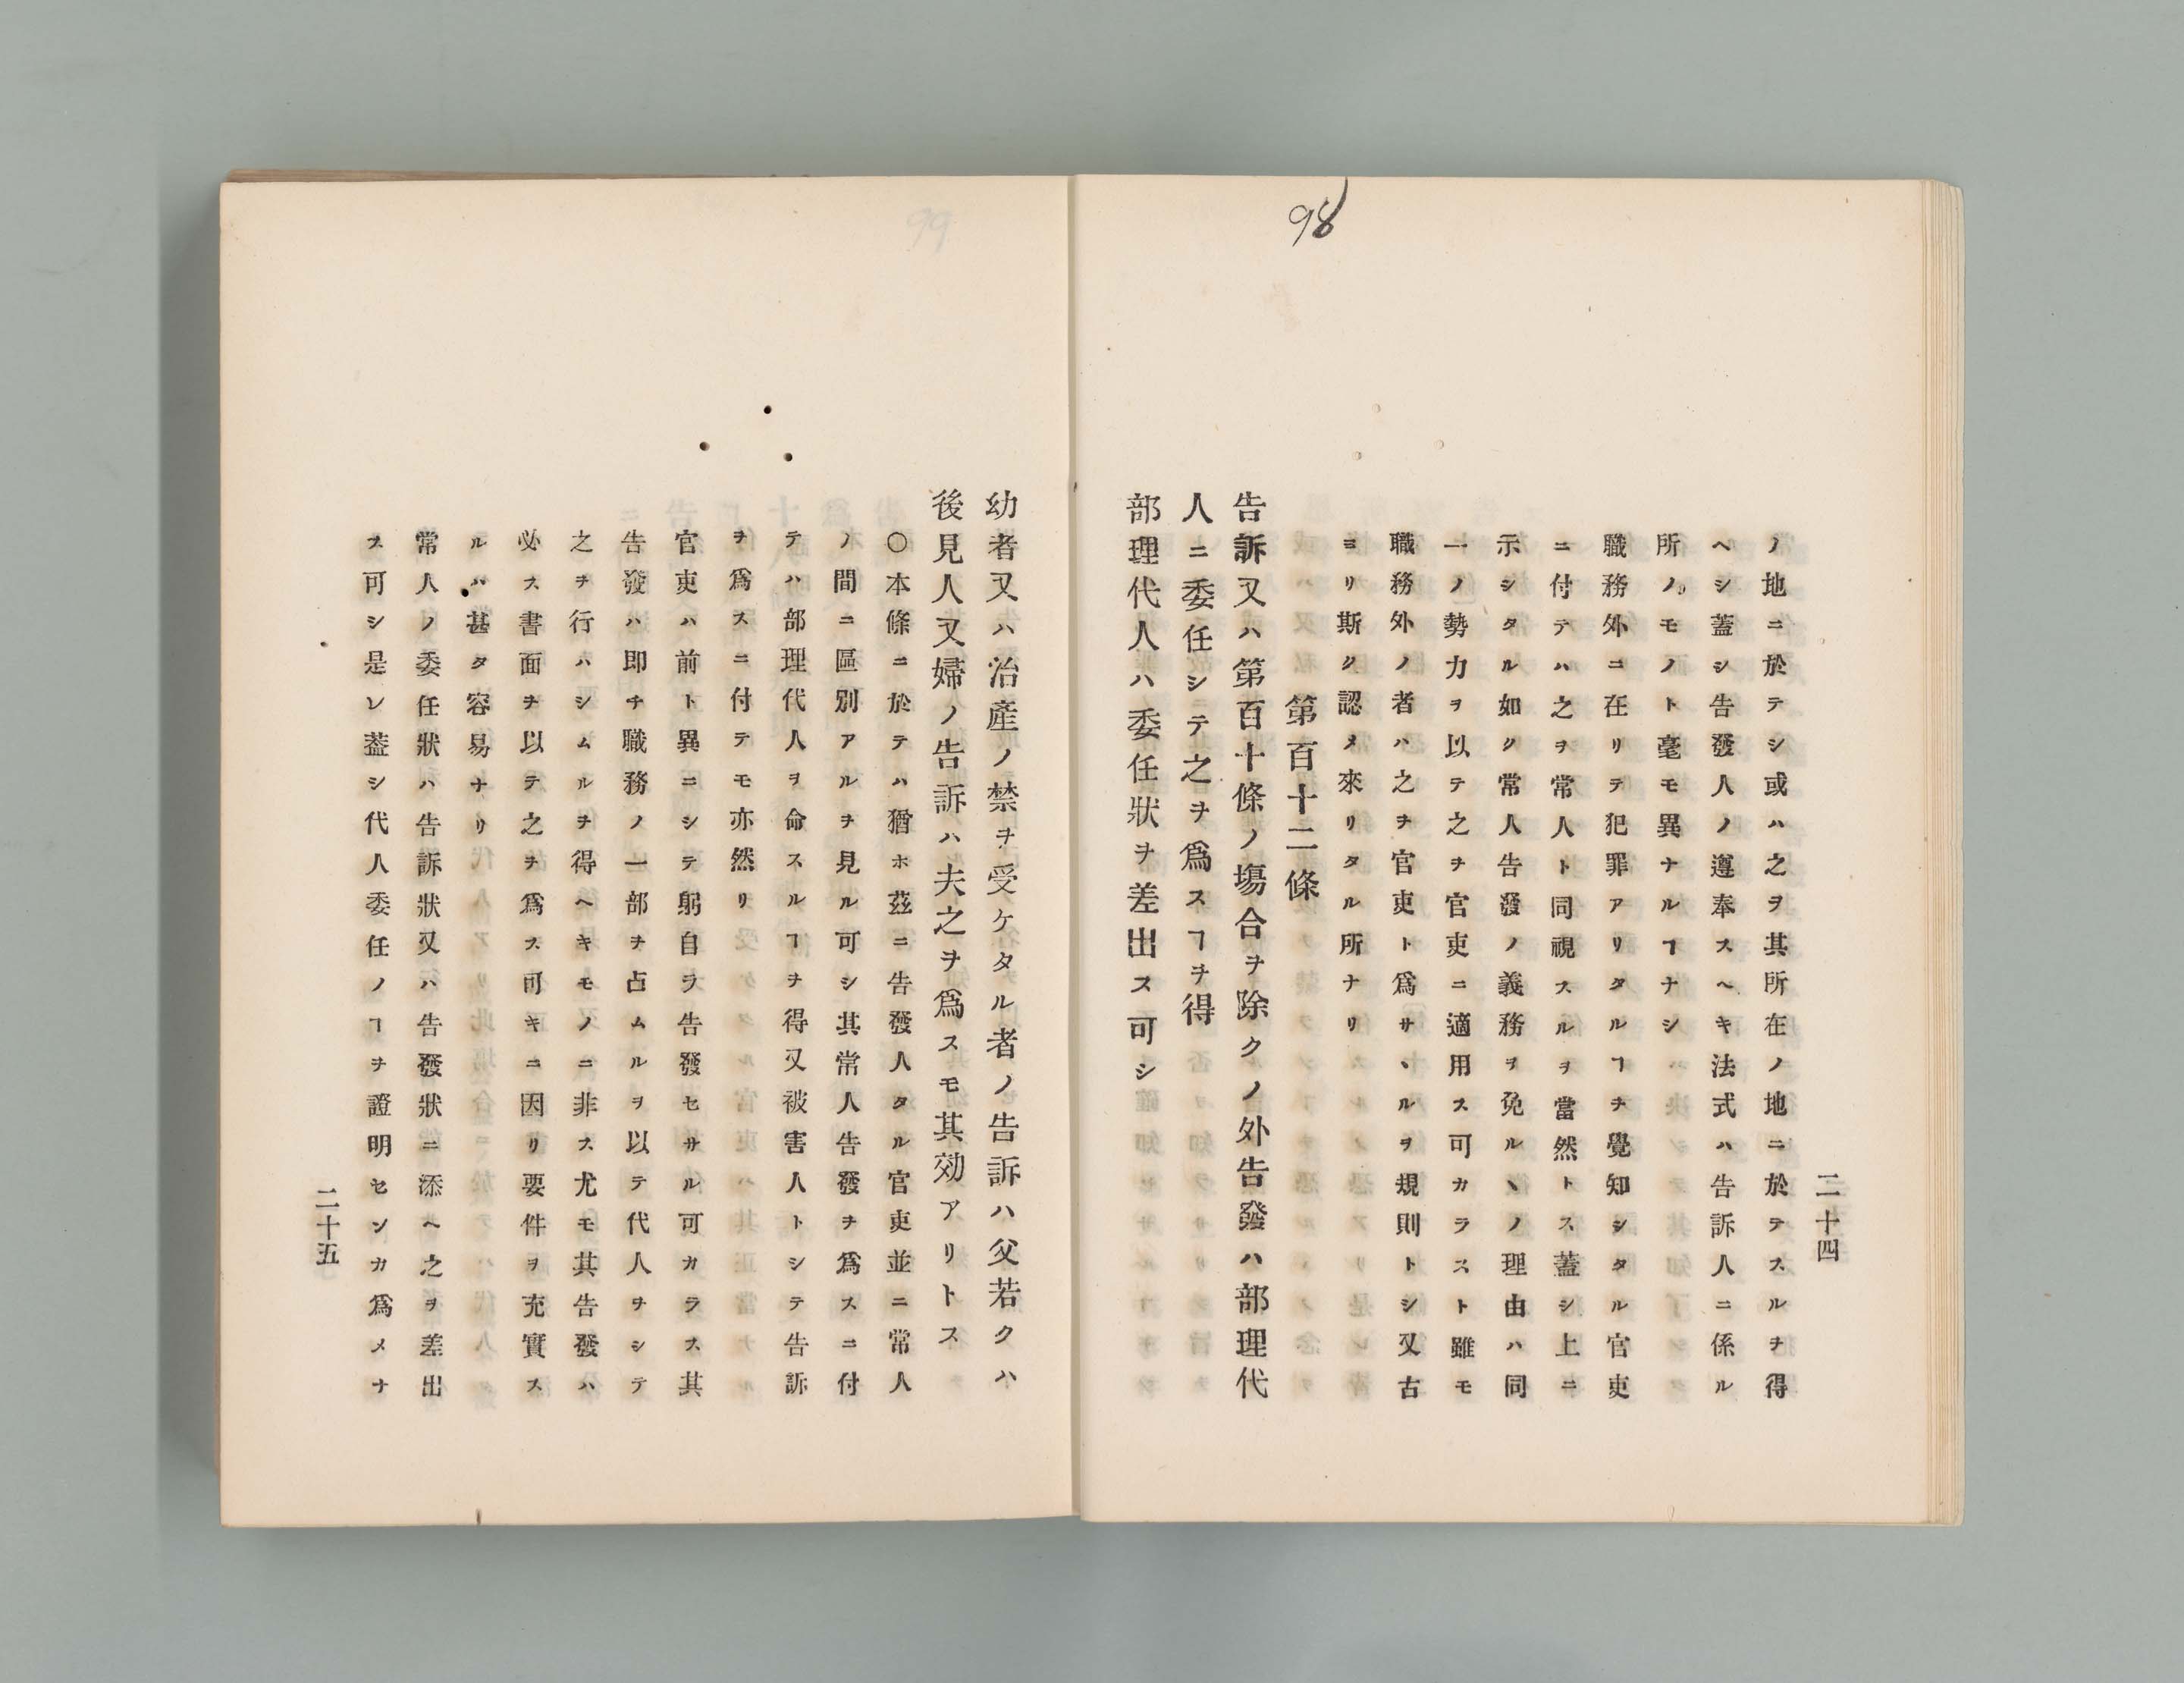 98
二十四
ノ地ニ於テシ或ハ之ヲ其所在ノ地ニ於テスルヲ得
ヘシ蓋シ告發人ノ遵奉スヘキ法式ハ告訴人ニ係ル
所ノモノト毫モ異ナルヿナシ
職務外ニ在リテ犯罪アリタルヿヲ覺知シタル官吏
ニ付テハ之ヲ常人ト同視スルヲ當然トス蓋シ上ニ
示シタル如ク常人告發ノ義務ヲ免ルヽノ理由ハ同
一ノ勢力ヲ以テ之ヲ官吏ニ適用ス可カラスト雖モ
職務外ノ者ハ之ヲ官吏ト爲サヽルヲ規則トシ又古
ヨリ斯ク認メ來リタル所ナリ
第百十二條
告訴又ハ第百十條ノ塲合ヲ除クノ外告發ハ部理代
人ニ委任シテ之ヲ爲スヿヲ得
部理代人ハ委任狀ヲ差出ス可シ
99
幼者又ハ治產ノ禁ヲ受ケタル者ノ告訴ハ父若クハ
後見人又婦ノ告訴ハ夫之ヲ爲スモ其効アリトス
〇本條ニ於テハ猶ホ茲ニ告發人タル官吏並ニ常人
ノ間ニ區別アルヲ見ル可シ其常人告發ヲ爲スニ付
テハ部理代人ヲ命スルヿヲ得又被害人トシテ告訴
ヲ爲スニ付テモ亦然リ
官吏ハ前ト異ニシテ躬自ラ告發セサル可カラス其
告發ハ即チ職務ノ一部ヲ占ムルヲ以テ代人ヲシテ
之ヲ行ハシムルヲ得ヘキモノニ非ス尤モ其告發ハ
必ス書面ヲ以テ之ヲ爲ス可キニ因リ要件ヲ充實ス
ルハ甚タ容易ナリ
常人ノ委任狀ハ告訴狀又ハ告發狀ニ添ヘ之ヲ差出
ス可シ是レ蓋シ代人委任ノヿヲ證明センカ爲メナ
二十五